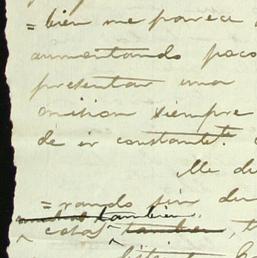 = bien me parece
aumentando poco
presentar una
omision siempre
de ir constante.
Me di
= rando sin du
tambien,
cosas tambien, t